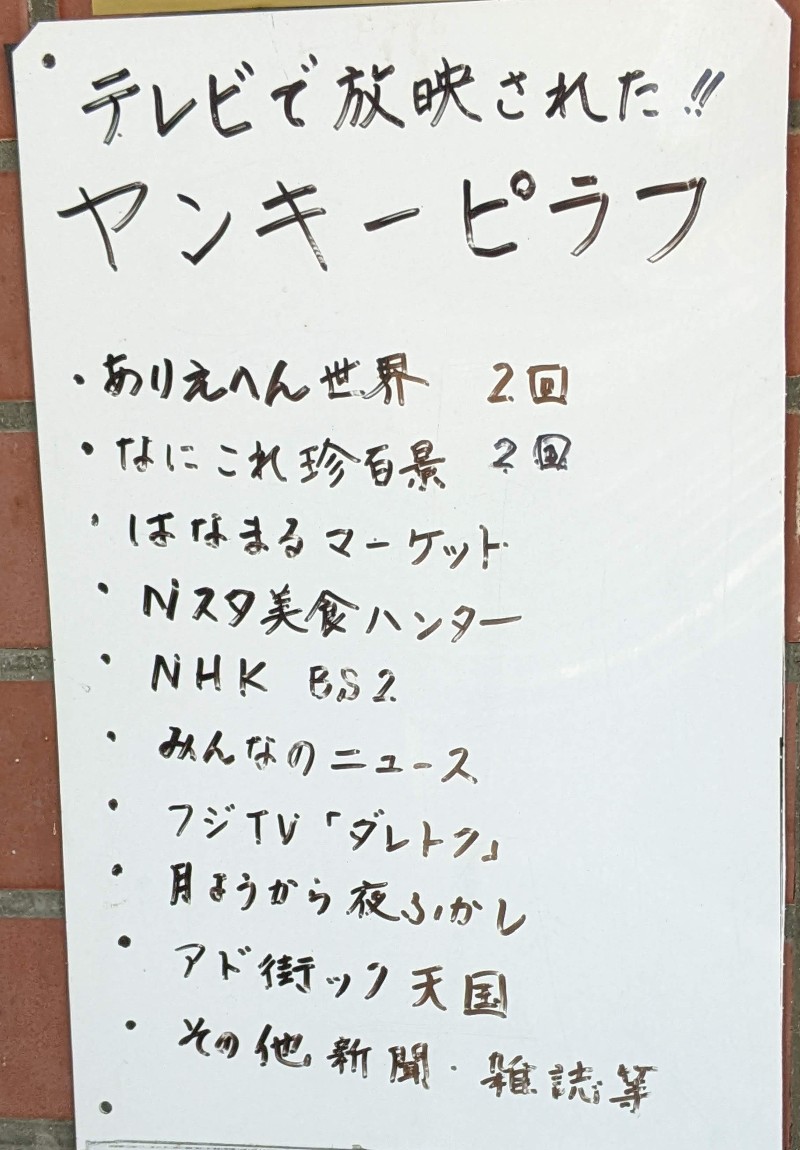 テレビで放映された!!
ヤンキーピラフ
・ありえへん世界 2回
・なにこれ珍百景 2回
・はなまるマーケット
・Nスタ美食ハンター
・NHK BS2
・みんなのニュース
・フジTV「ダレトク」
・月ようから夜ふかし
・アド街ック天国
・その他新聞・雑誌等